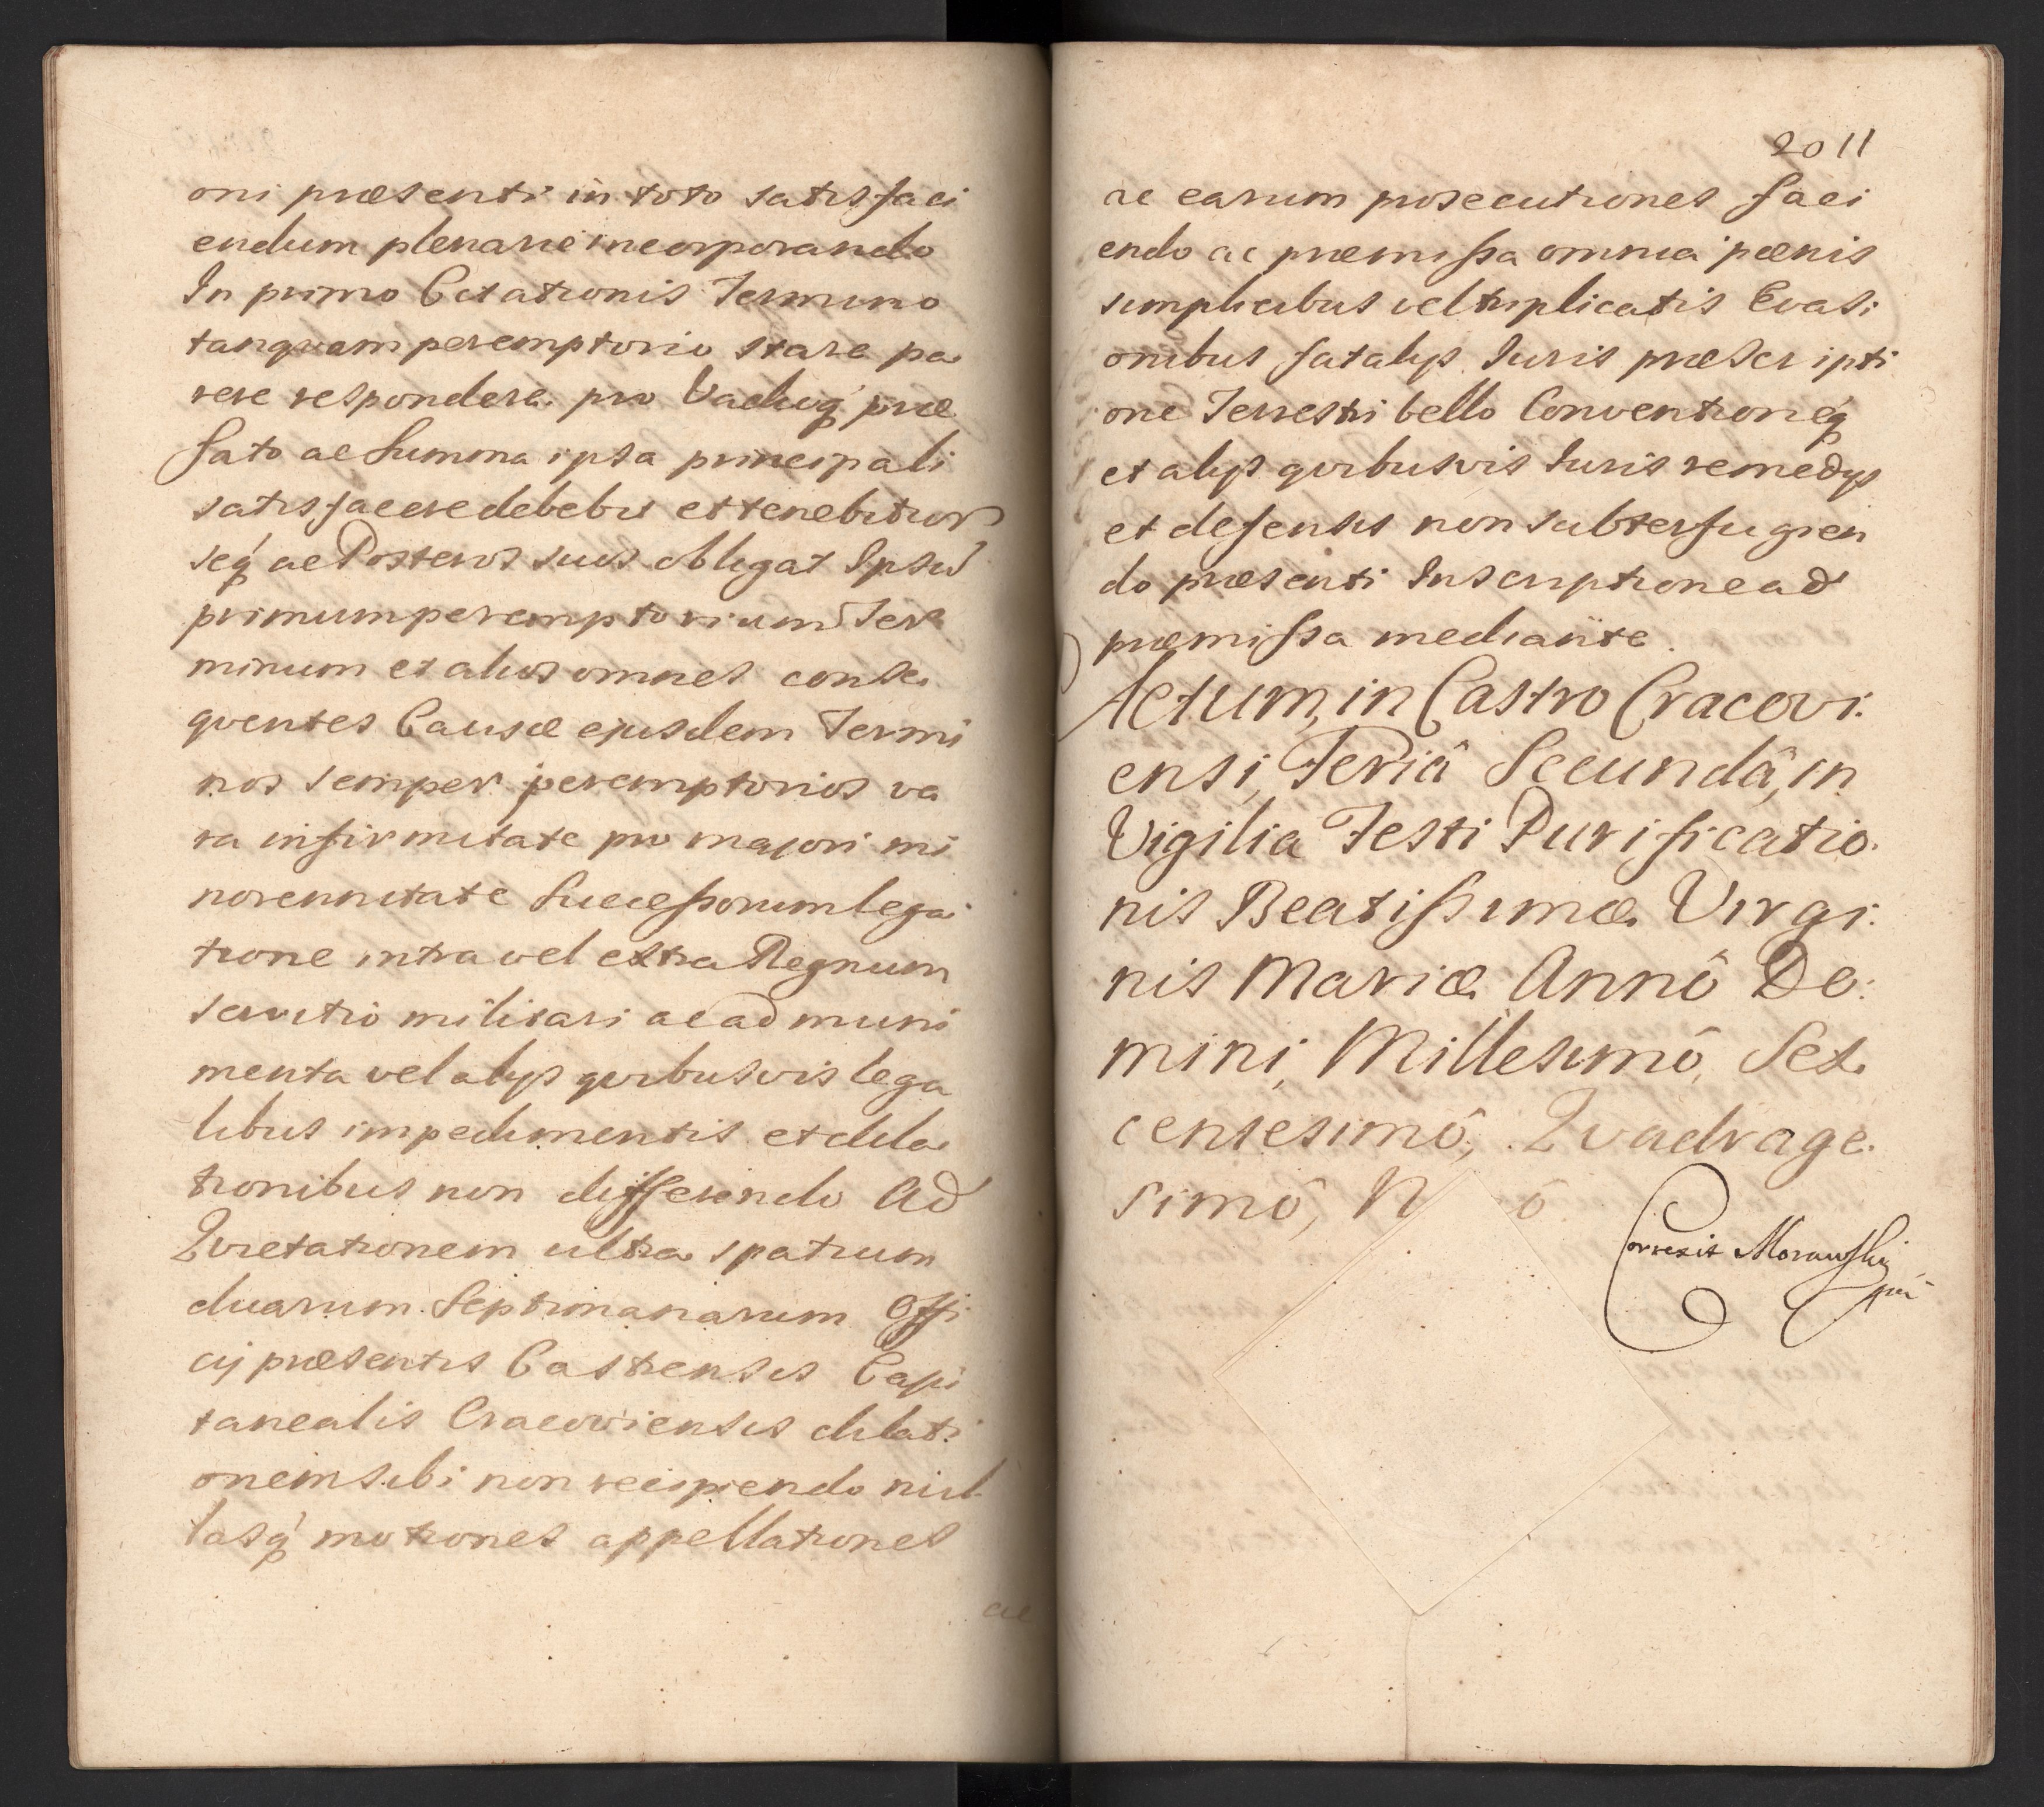 oni præsenti in toto satisfaci
endum plenarie incorporando
In primo Citationis Termino
tanqvam peremptorio stare pa
rere respondere pro Vadioq́ præ
fato ac Summa ipsa principali
satisfacere debebit et tenebitur
seq́ ac Posteros suos obligat Ipsũ
primum peremptorium Ter
minum et alios omnes conse
qventes Causæ ejusdem Termi
nos semper peremptorios va
ra infirmitate pro majori mi
norennitate Successorum lega
tione intra vel extra Regnum
servitio militari ac ad muni
menta vel alijs qvibusvis lega
libus impedimentis et dila
tionibus non differendo Ad
Qvietationem ultra spatium
duarum Septimanarum Offi
cij præsentis Castrensis Capi
tanealis Cracoviensis dilati
onem sibi non recipiendo nul
lasq́ motiones appellationes
ac
2011
ac earum prosecutiones faci
endo ac præmissa omnia pœnis
simplicibus vel triplicatis Evasi
onibus fatalijs Iuris præscripti
one Terrestri bello Conventioneq́
et alijs qvibusvis Iuris remedijs
et defensis non subterfugien
do præsenti Inscriptione ad
præmissa mediante.
Actum, in Castro Cracovi:
ensi, Feriâ Secundâ, in
Vigilia Festi Purificatio:
nis Beatissimæ Virgi:
nis Mariæ Annô Do:
mini, Millesimô, Sex
centesimô, Qvadrage:
simô, N ô
Correxit Morawski
mp